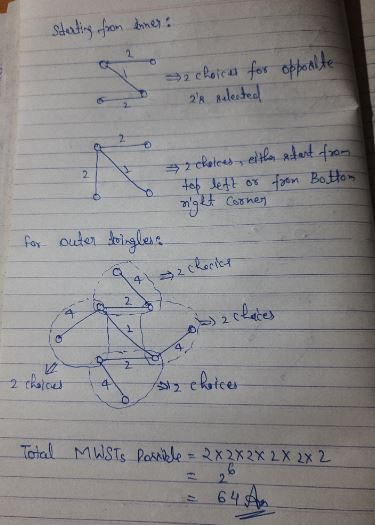 Starting from inner:
2
1
2
⇒ 2 choices for opposite
2's selected
2
2
2
⇒ 2 choices, either start from
top left or from Bottom
right corner
for outer triangles:
4
⇒ 2 choices
2
4
1
⇒ 2 choices
4
2
2 choices
4
⇒ 2 choices
Total MWSTs Possible = 2x2x2x2x2x2
= 2^6
= 64 Ans